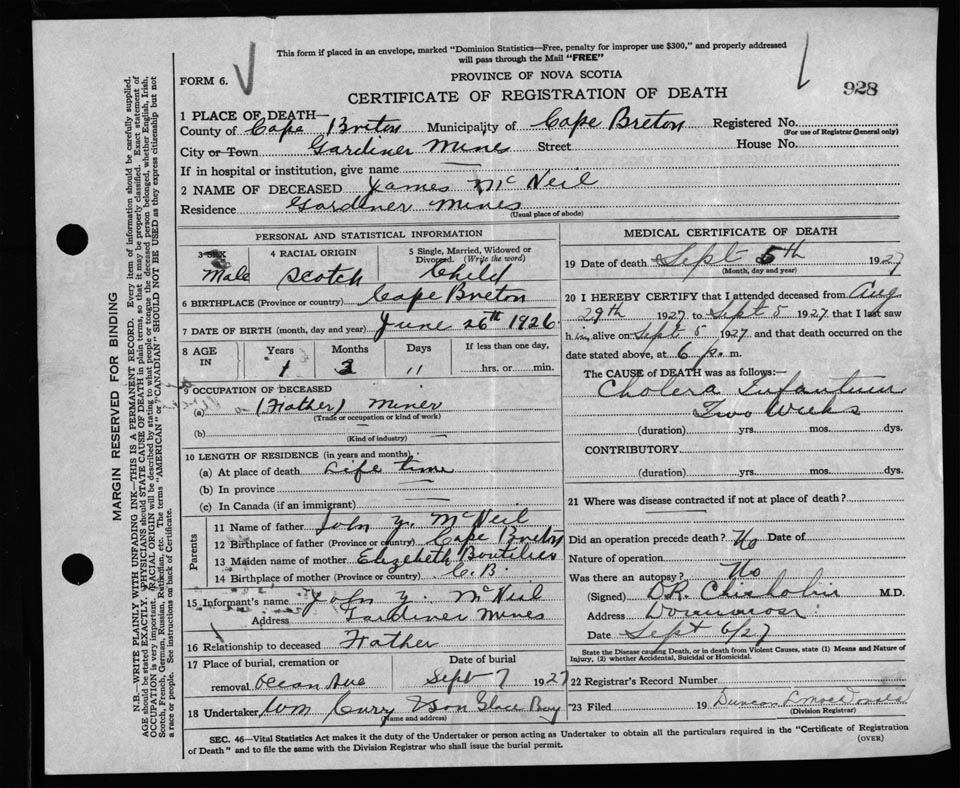 This form if placed in an envelope, marked "Dominion Statistics—Free, penalty for improper use $300," and properly addressed
will pass through the Mail "FREE"
FORM 6.
PROVINCE OF NOVA SCOTIA
928
CERTIFICATE OF REGISTRATION OF DEATH
1 PLACE OF DEATH—
County of Cape Breton Municipality of Cape Breton Registered No.
(For use of Registrar General only)
City or Town Gardiner Mines Street House No.
If in hospital or institution, give name
2 NAME OF DECEASED James McNeil
Residence Gardiner Mines
(Usual place of abode)
PERSONAL AND STATISTICAL INFORMATION
3 SEX 4 RACIAL ORIGIN 5 Single, Married, Widowed or Divorced. (Write the word)
Male Scotch Child
6 BIRTHPLACE (Province or country) Cape Breton
7 DATE OF BIRTH (month, day and year) June 26th 1926
8 AGE IN Years Months Days If less than one day,
1 11 hrs. or min.
9 OCCUPATION OF DECEASED
(a) (Father) Miner
(Trade or occupation or kind of work)
(b)
(Kind of industry)
10 LENGTH OF RESIDENCE (in years and months)
(a) At place of death Life time
(b) In province
(c) In Canada (if an immigrant)
Parents
11 Name of father John Y. McNeil
12 Birthplace of father (Province or country) Cape Breton
13 Maiden name of mother Elizebeth Boutilier
14 Birthplace of mother (Province or country) C.B.
15 Informant's name John Y. McNeil
Address Gardiner Mines
16 Relationship to deceased Father
17 Place of burial, cremation or Date of burial
removal Ocean Ave Sept 7 1927
18 Undertaker Wm Curry & Son Glace Bay
(Name and address)
MEDICAL CERTIFICATE OF DEATH
19 Date of death Sept 5th 1927
(Month, day and year)
20 I HEREBY CERTIFY that I attended deceased from Aug
29th 1927 to Sept 5 1927 that I last saw
him alive on Sept 5 1927 and that death occurred on the
date stated above, at 6 p. m.
The CAUSE of DEATH was as follows:—
Cholera Infantum
Two Weeks
(duration) yrs. mos. dys.
CONTRIBUTORY
(duration) yrs. mos. dys.
21 Where was disease contracted if not at place of death?
Did an operation precede death? No Date of
Nature of operation
Was there an autopsy? No
(Signed) D.R. Chisholm M.D.
Address
Date Sept 6/27
State the Disease causing Death, or in death from Violent Causes, state (1) Means and Nature of
Injury, (2) whether Accidental, Suicidal or Homicidal.
22 Registrar's Record Number
23 Filed 19 Duncan
(Division Registrar)
SEC. 46—Vital Statistics Act makes it the duty of the Undertaker or person acting as Undertaker to obtain all the particulars required in the "Certificate of Registration
of Death" and to file the same with the Division Registrar who shall issue the burial permit.
(OVER)
MARGIN RESERVED FOR BINDING
N.B.—WRITE PLAINLY WITH UNFADING INK—THIS IS A PERMANENT RECORD. Every item of information should be carefully supplied.
AGE should be stated EXACTLY. PHYSICIANS should STATE CAUSE OF DEATH in plain terms, so that it may be properly classified. Exact statement of
OCCUPATION is very important. RACIAL ORIGIN will be described by stating to what people or tongue the deceased person belonged, whether English, Irish,
Scotch, French, German, Russian, Ruthenian, etc. The terms "AMERICAN" or "CANADIAN" SHOULD NOT BE USED as they express citizenship but not
a race or people. See instructions on back of Certificate.